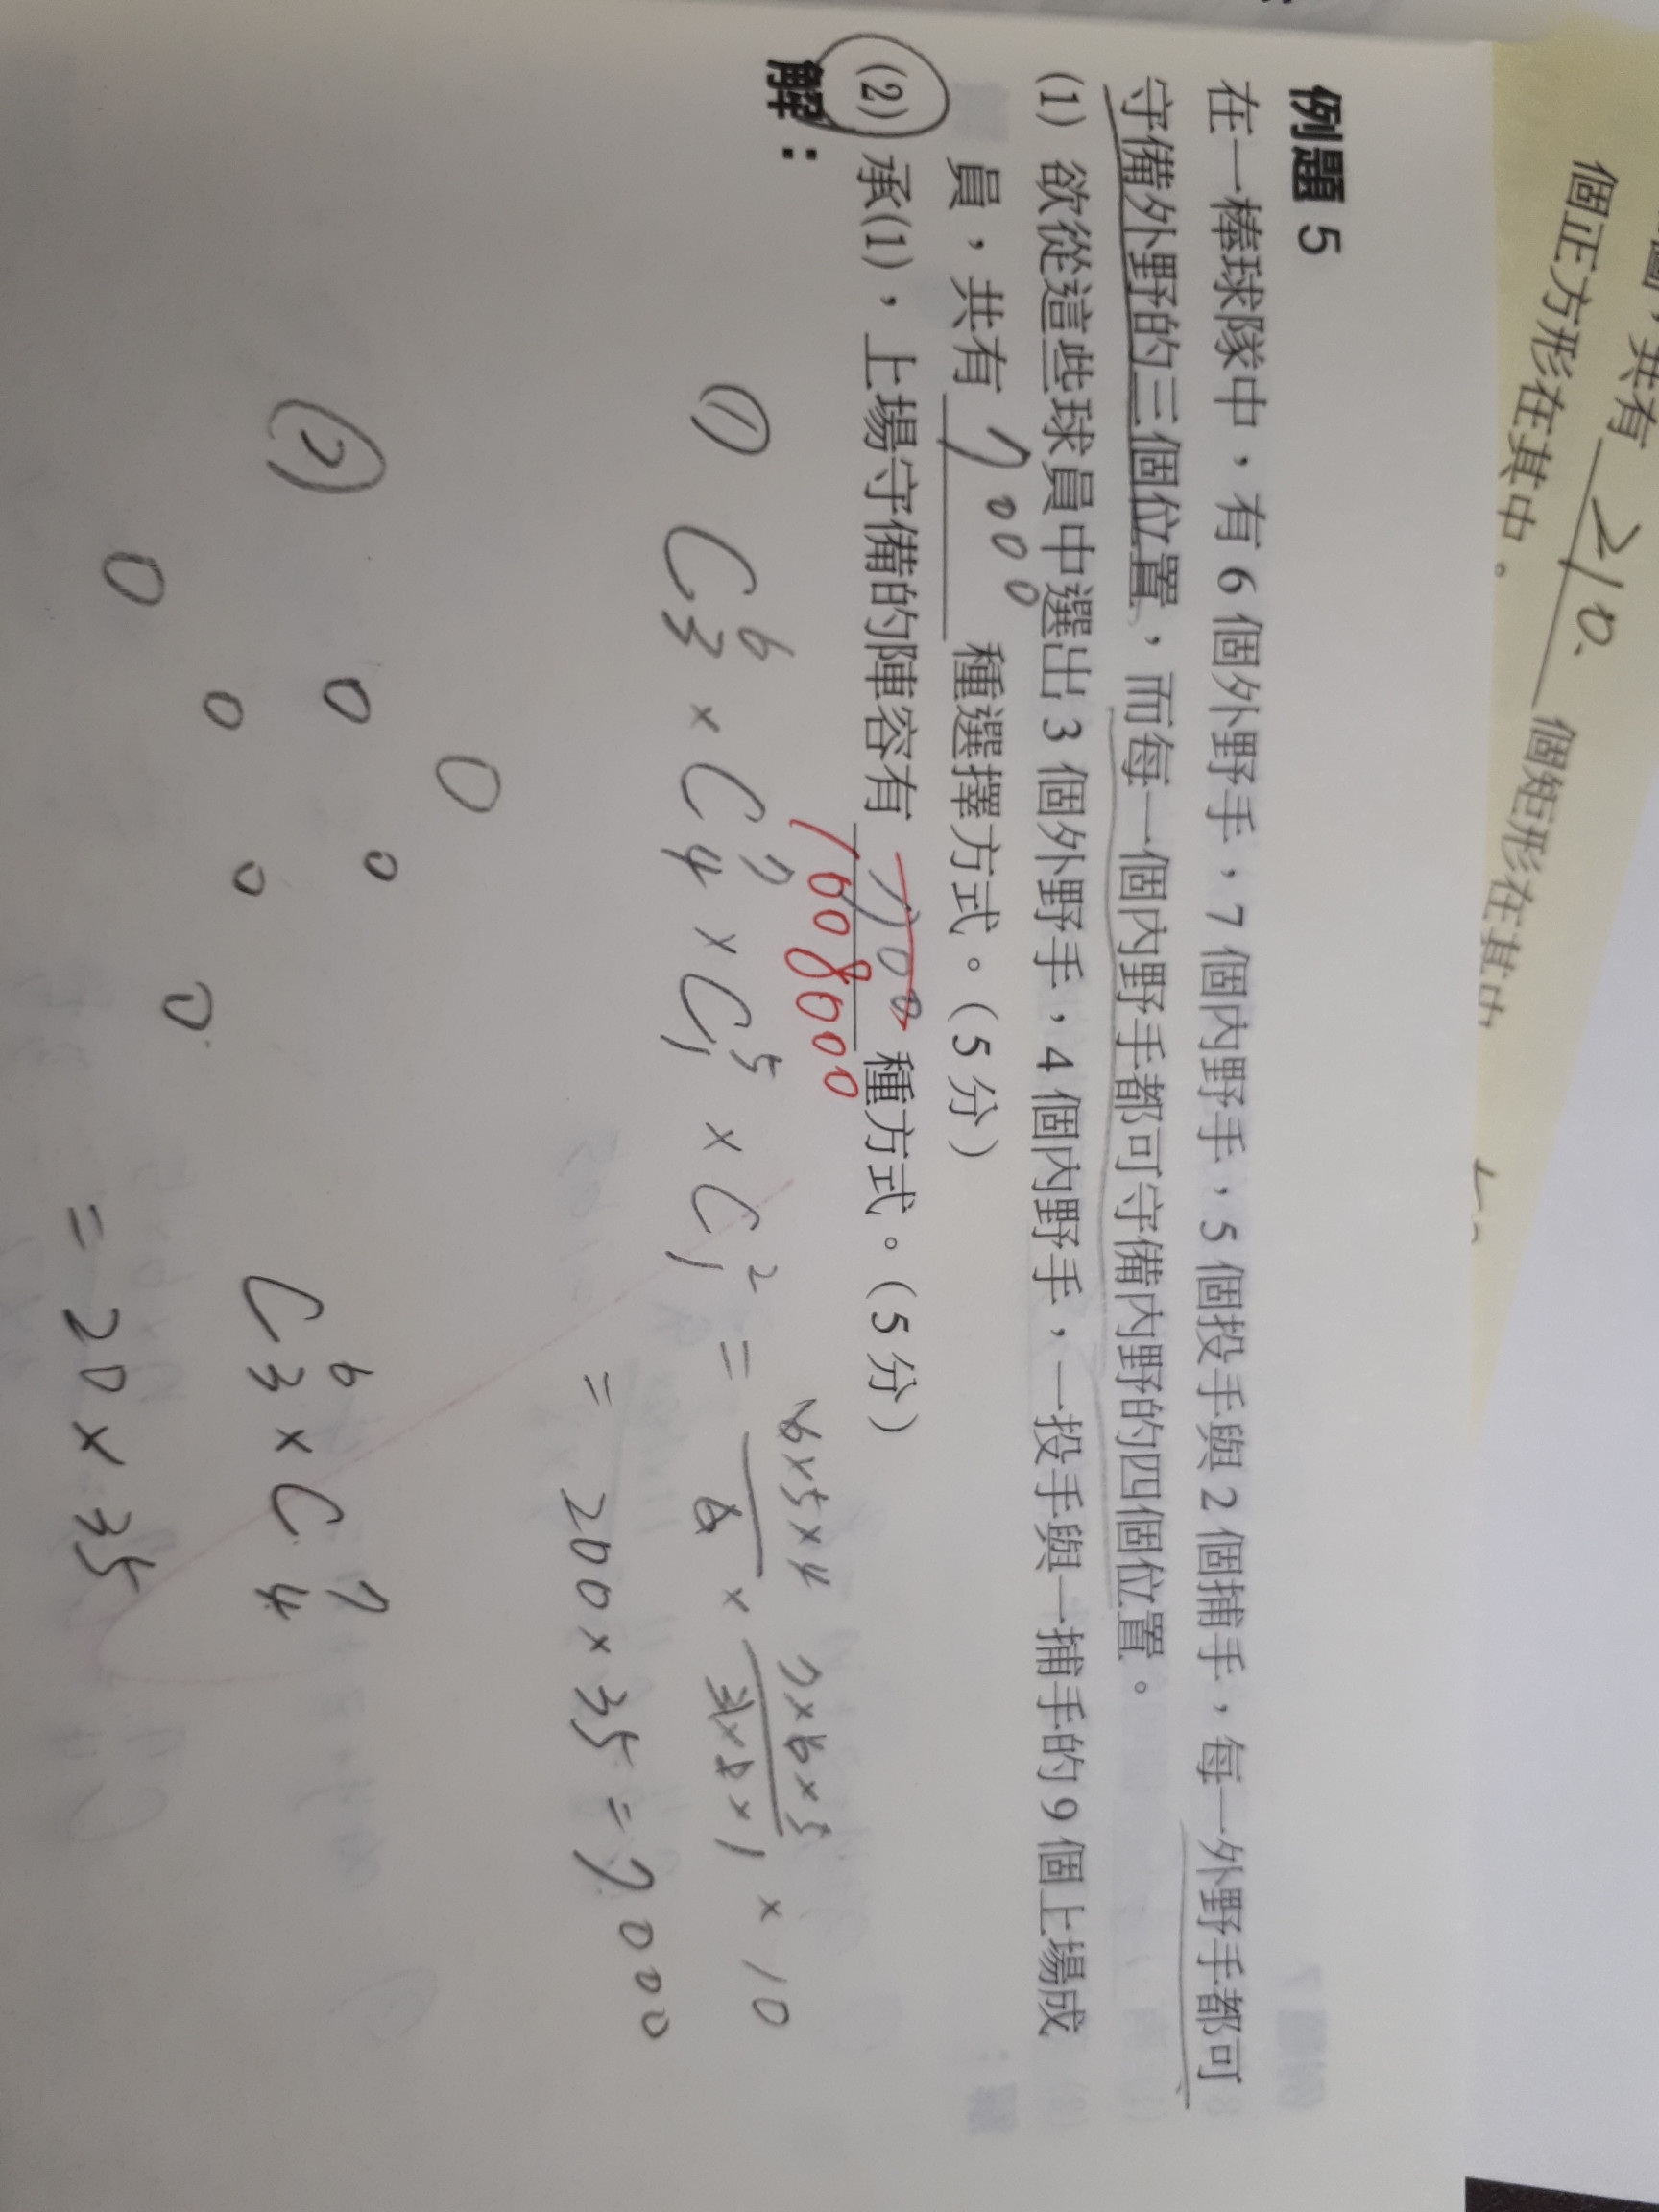 圖，共有 210 個矩形在其中
個正方形在其中。
例題 5
在一棒球隊中，有 6 個外野手，7 個內野手，5 個投手與 2 個捕手，每一外野手都可
守備外野的三個位置，而每一個內野手都可守備內野的四個位置。
(1) 欲從這些球員中選出 3 個外野手，4 個內野手，一投手與一捕手的 9 個上場成
員，共有 7000 種選擇方式。（5 分）
(2) 承(1)，上場守備的陣容有 700 種方式。（5 分）
1008000
解：
① C⁶₃ × C⁷₄ × C⁵₁ × C²₁ = 6×5×4/6 × 7×6×5/3×2×1 × 10
= 200 × 35 = 7000
②
C⁶₃ × C⁷₄
= 20 × 35